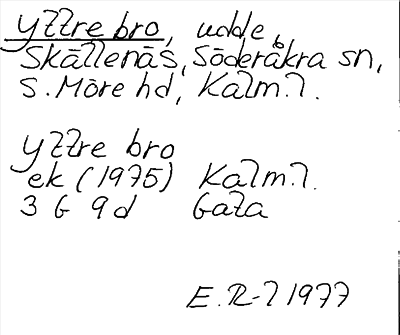 Yttre bro, udde,
Skällenäs, Söderåkra sn,
S. Möre hd, Kalm.l.
Yttre bro
ek (1975) Kalm.l.
3 G 9 d Gata
E. R-l 1977